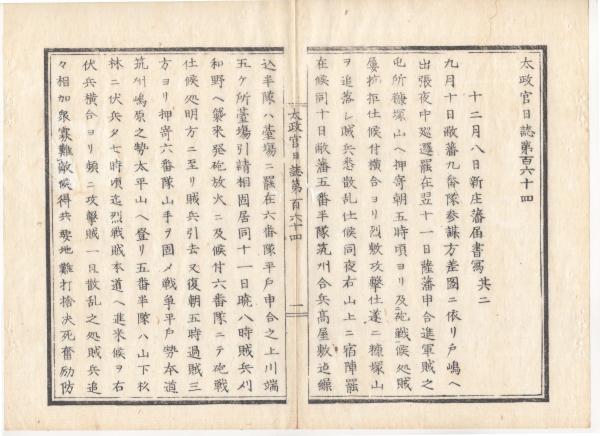 太政官日誌第百六十四
十二月八日新庄藩届書寫 其二
九月十日敵藩九番隊参謀方差圖ニ依リ戸嶋ヘ
出張夜中廻邏罷在翌十一日薩藩申合進軍賊之
屯所糠塚山ヘ押寄朝五時頃ヨリ及砲戦候処賊
屡抗拒仕候付横合ヨリ烈敷攻撃仕遂ニ糠塚山
ヲ追落シ賊兵悉散乱仕候同夜右山上ニ宿陣罷
在候同十日敵藩五番半隊筑州合兵高屋敷迠繰
込半隊ハ臺場ニ罷在六番隊平戸申合之上川端
五ケ所臺場引請相固居同十一日暁八時賊兵刈
和野ヘ襲来発砲放火ニ及候付六番隊ニテ砲戦
仕候処明方ニ至リ賊兵引去又復朝五時過賊三
方ヨリ押寄六番隊山手ヲ固メ戦争平戸勢本道
筑州嶋原之勢太平山ヘ登リ五番半隊ハ山下杉
林ニ伏兵夕七時頃迠烈戦賊本道ヘ進来候ヲ右
伏兵横合ヨリ頻ニ攻撃賊一旦散乱之処賊兵追
々相加衆寡難敵候得共要地難打捨决死奮励防
太政官日誌第百六十四
一